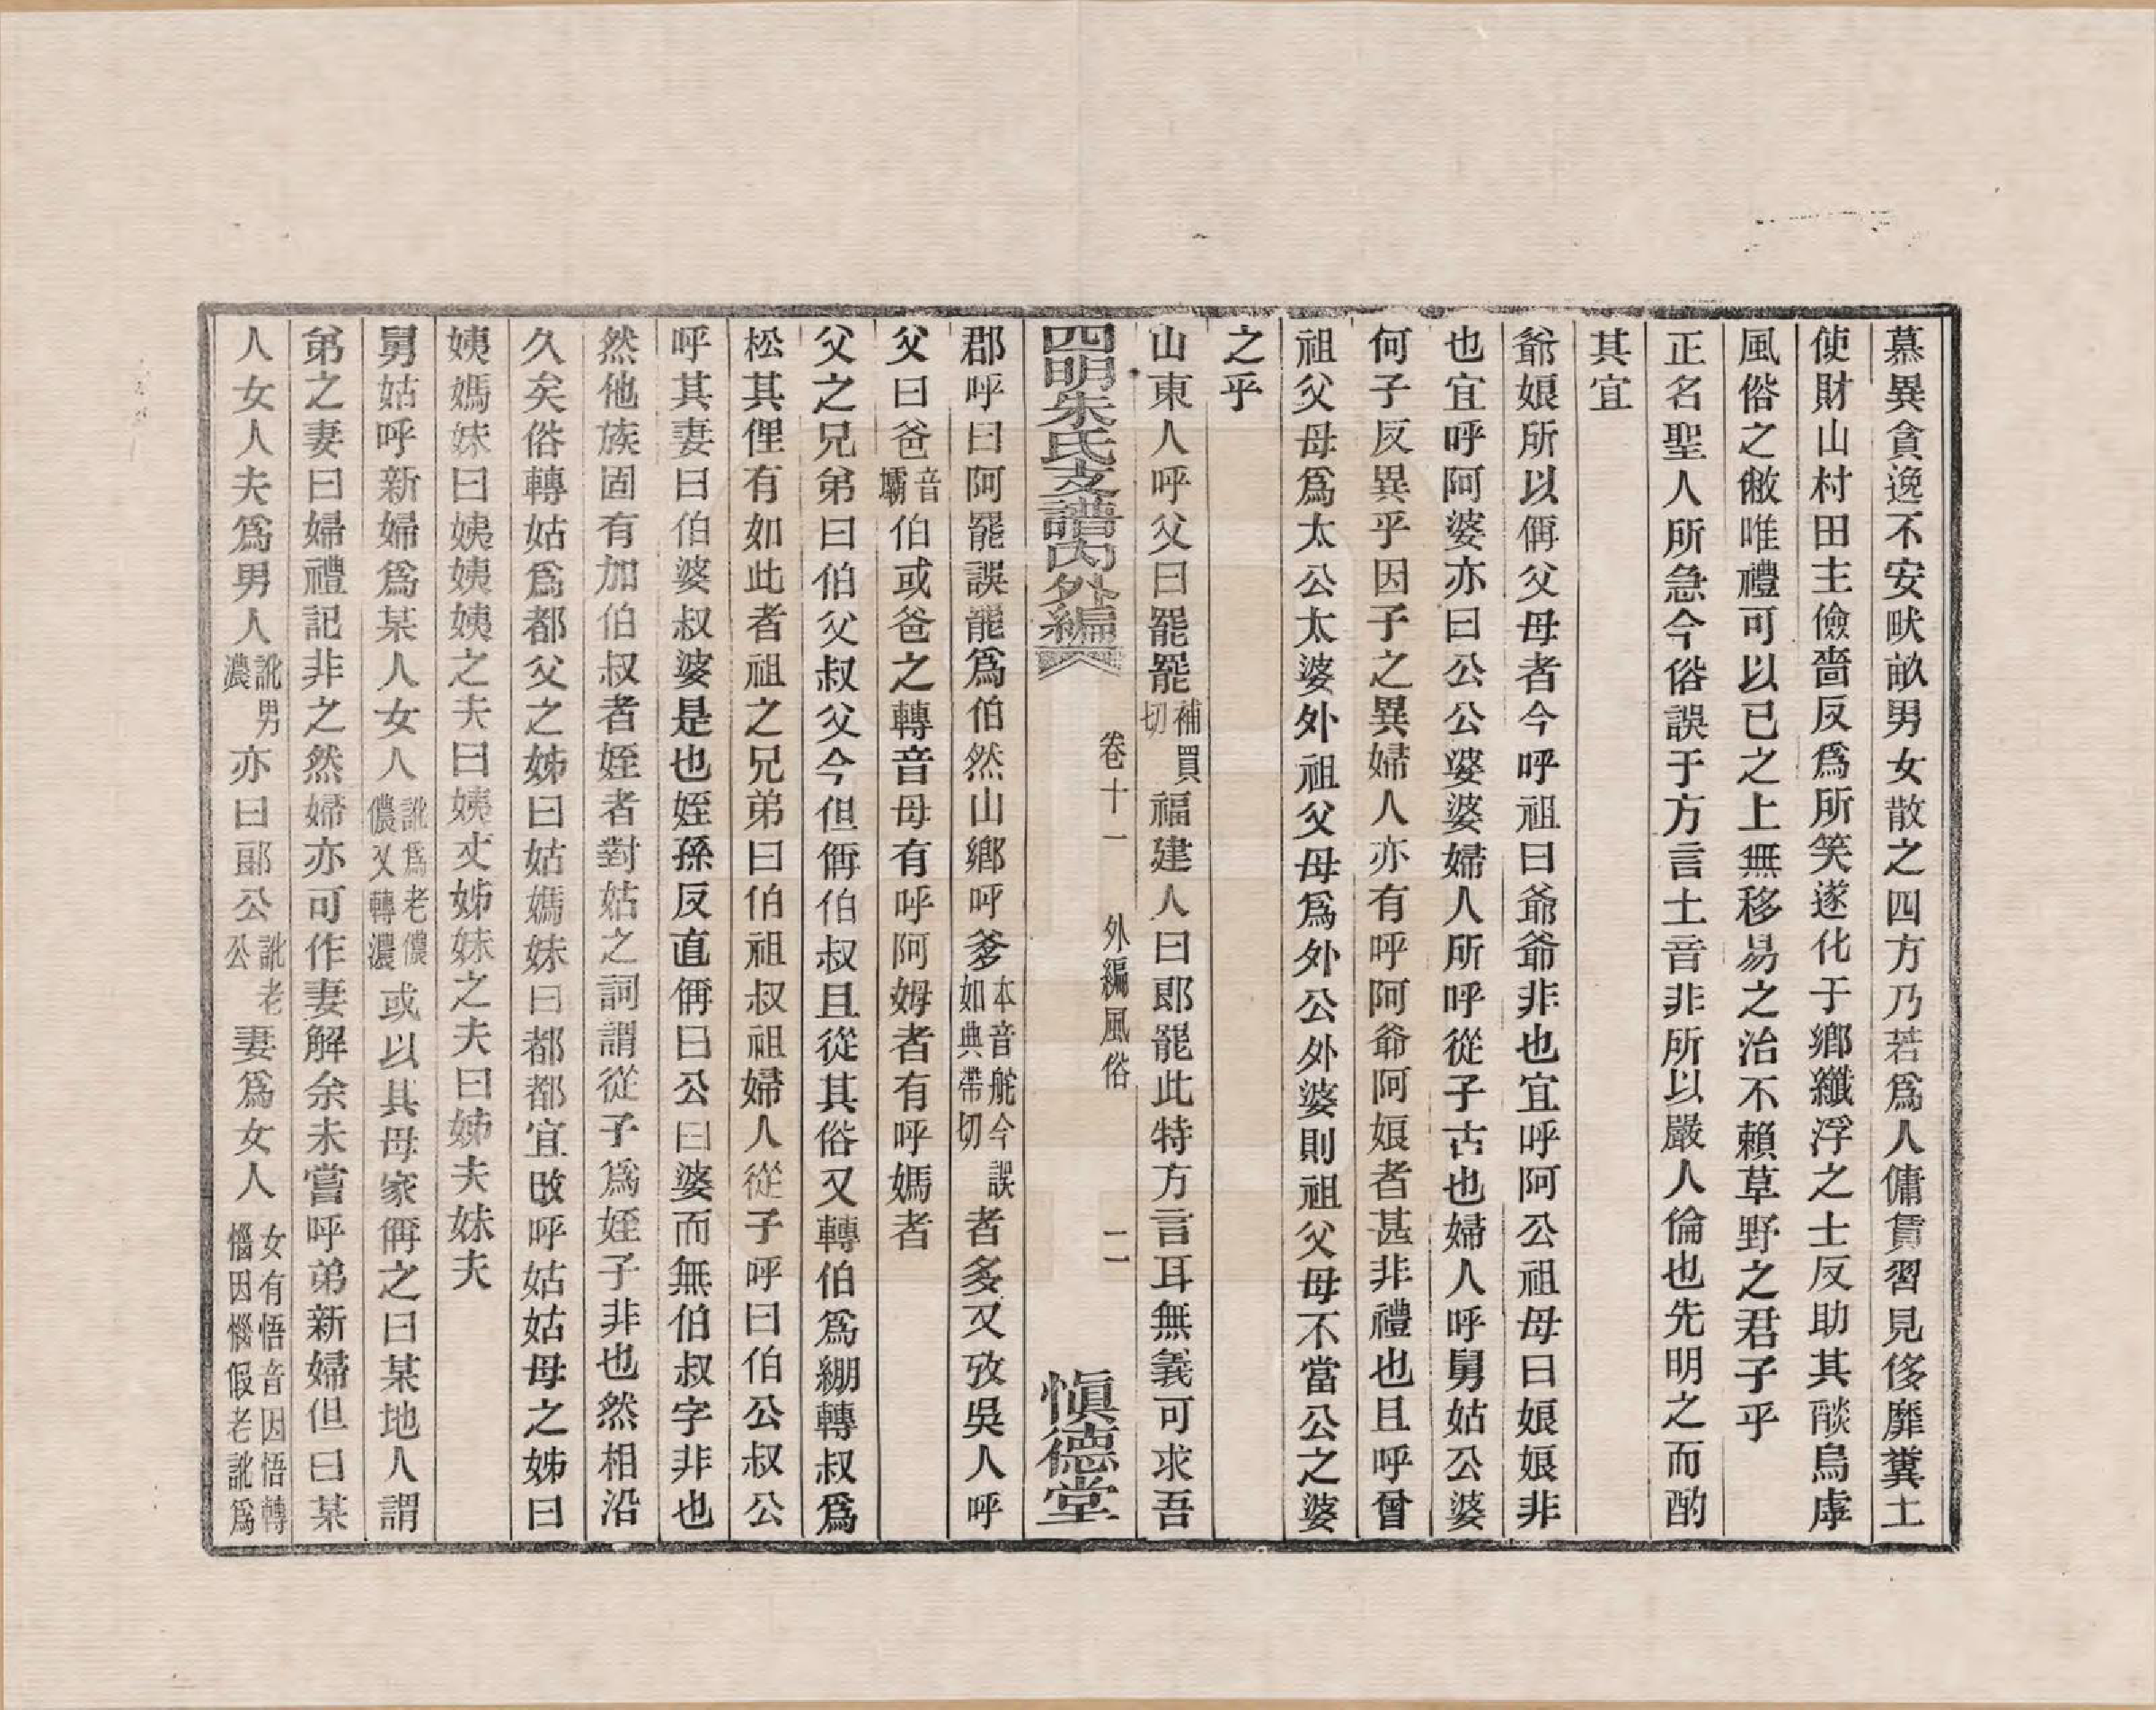 慕異貪逸不安畎畝男女散之四方乃若爲人傭賃習見侈靡糞土
使財山村田主儉嗇反爲所笑遂化于鄉纖浮之士反助其燄烏虖
風俗之敝唯禮可以已之上無移易之治不賴草野之君子乎
正名聖人所急今俗誤于方言土音非所以嚴人倫也先明之而酌
其宜
爺娘所以偁父母者今呼祖曰爺爺非也宜呼阿公祖母曰娘娘非
也宜呼阿婆亦曰公公婆婆婦人所呼從子古也婦人呼舅姑公婆
何子反異乎因子之異婦人亦有呼阿爺阿娘者甚非禮也且呼曾
祖父母爲太公太婆外祖父母爲外公外婆則祖父母不當公之婆
之乎
山東人呼父曰罷罷補買切福建人曰郎罷此特方言耳無義可求吾
四明朱氏支譜內外編
卷十一 外編風俗 二
愼德堂
郡呼曰阿罷誤罷爲伯然山鄉呼爹本音舵今誤如典帶切者多又攷吳人呼
父曰爸音壩伯或爸之轉音母有呼阿姆者有呼媽者
父之兄弟曰伯父叔父今但偁伯叔且從其俗又轉伯爲綳轉叔爲
松其俚有如此者祖之兄弟曰伯祖叔祖婦人從子呼曰伯公叔公
呼其妻曰伯婆叔婆是也姪孫反直偁曰公曰婆而無伯叔字非也
然他族固有加伯叔者姪者對姑之詞謂從子爲姪子非也然相沿
久矣俗轉姑爲都父之姊曰姑媽妹曰都都宜改呼姑姑母之姊曰
姨媽妹曰姨姨姨之夫曰姨丈姊妹之夫曰姊夫妹夫
舅姑呼新婦爲某人女人訛爲老儂儂又轉濃或以其母家偁之曰某地人謂
弟之妻曰婦禮記非之然婦亦可作妻解余未嘗呼弟新婦但曰某
人女人夫爲男人訛男濃亦曰郎公訛老公妻爲女人女有悟音因悟轉惱因惱假老訛爲